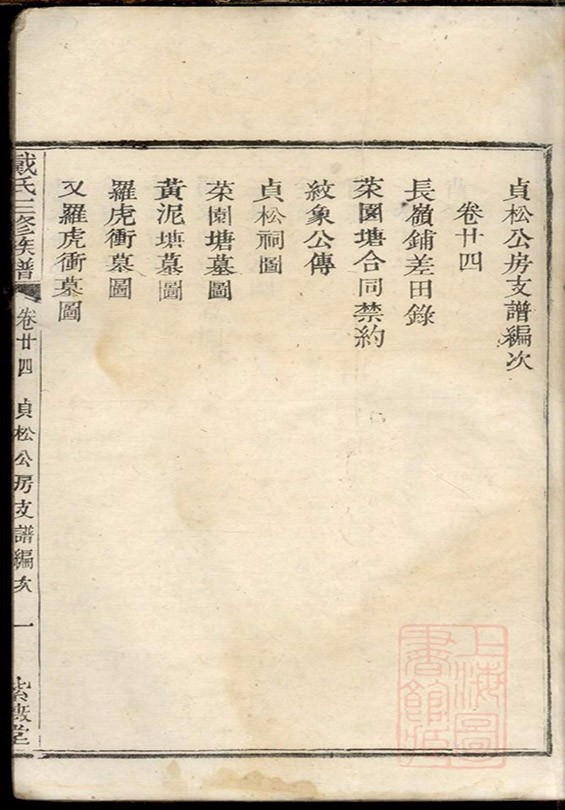 貞松公房支譜編次
卷廿四
長嶺鋪差田錄
菜園塘合同禁約
紋象公傳
貞松祠圖
菜園塘墓圖
黃泥塘墓圖
羅虎衝墓圖
又羅虎衝墓圖
戴氏三修族譜
卷廿四
貞松公房支譜編次
一
紫薇堂
上海圖書館藏